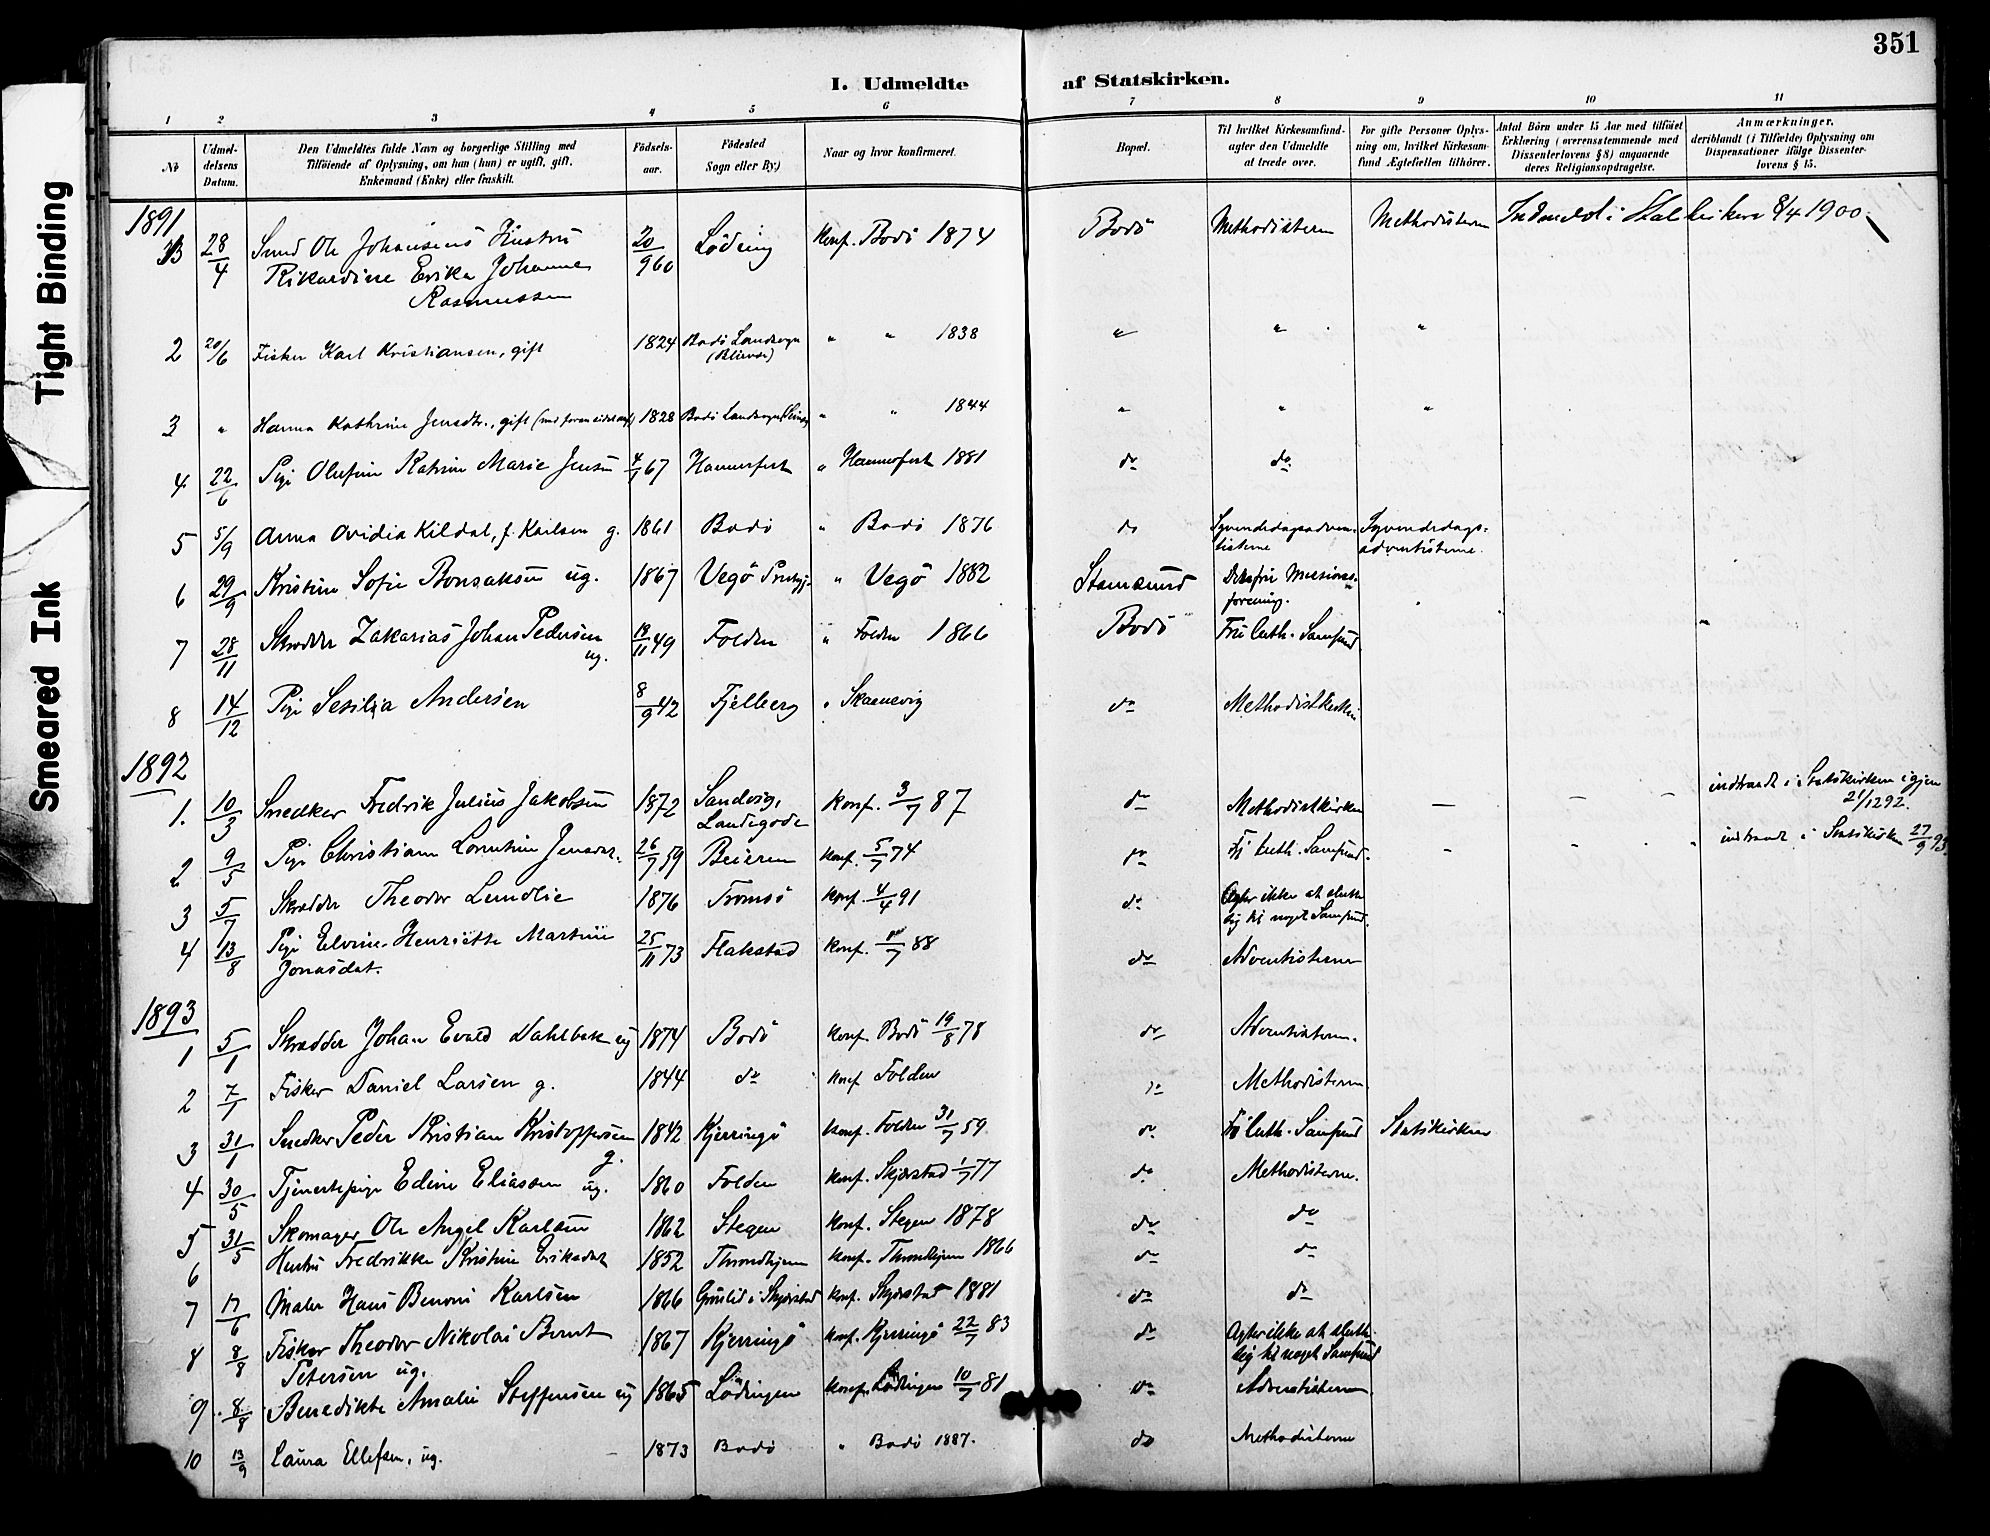 351
I. Udmeldte af Statskirken.
1 2 3 4 5 6 7 8 9 10 11
Nr
Udmel-
delsens
Datum.
Den Udmeldtes fulde Navn og borgerlige Stilling med
Tilföiende af Oplysning, om han (hun) er ugift, gift,
Enkemand (Enke) eller fraskilt.
Födsels-
aar.
Födested
Sogn eller By.)
Naar og hvor konfirmeret.
Bopæl.
Til hvilket Kirkesamfund-
agter den Udmeldte
at træde over.
For gifte Personer Oplys-
ning om, hvilket Kirkesam-
fund Ægtefællen tilhörer.
Antal Börn under 15 Aar med tilföiet
Erklæring (overensstemmende med
Dissenterlovens § 8) angaaende
deres Religionsopdragelse.
Anmærkninger,
deriblandt (i Tilfælde) Oplysning om
Dispensationer ifölge Dissenter-
lovens § 15.
1891
28/4 Smed Ole Johansens Hustru 20/9 60 Löding Konf. Bodö 1874 Bodö Methodisterne Methodisterne Indmeldt i Statskirken 8/4 1900.
Rikardine Erika Johanne
Rasmussen
2 20/6 Fisker Karl Kristiansen, gift 1824 Bodö Landsogn " " 1838 " " "
3 " Hanna Kathrine Jensdtr., gift 1828 Bodö Landsogn " " 1844 " " "
4 22/6 Pige Olufine Katrine Marie Jensen 4/7 67 Hammerfest " Hammerfest 1881 do do
5 5/9 Anna Ovidia Kildal, f. Karlsen g. 1861 Bodö " Bodö 1876 do Syvendedagsadven- Syvendedags-
tisterne adventisterne.
6 29/9 Kristine Sofie Bonsaksen ug. 1867 Vegö Prstgj. " Vegö 1882 Stamsund Den frie Missions-
forening.
7 28/11 Skrædder Zakarias Johan Pedersen 18/11 49 Folden " Folden 1866 Bodö Fri luth. Samfund
ug.
8 14/12 Pige Sesilia Andersen 8/9 42 Fjelberg " Skaanevig do Methodistkirken
1892
1. 10/3 Snedker Fredrik Julius Jakobsen 1872 Sandvig, Konf. 3/7 87 do Methodistkirken — — — indtraadt i Statskirken igjen
Landegode 21/12 92.
2 9/5 Pige Christiane Lorntine Jensdtr. 26/7 59 Beieren Konf. 5/7 74 do Fr luth. Samfund. indtraadt i Statskirken 27/9 93
3 5/7 Skrædder Theodor Lundlie 1876 Tromsö Konf. 4/4 91 do Agter ikke at slutte
sig til noget Samfund.
4 13/8 Pige Elvine Henriette Martine 25/11 73 Flakstad Konf. 88 do Adventisterne
Jonasdat.
1893
1 5/1 Skrædder Johan Evald Dahlbak ug 1874 Bodö Konf. Bodö 19/8 78 do Adventisterne.
2 7/1 Fisker Daniel Larsen g. 1844 do Konf Folden do Methodisterne
3 31/1 Snedker Peder Kristian Kristoffersen 1842 Kjerringö Konf. Folden 31/7 59 do Fr luth. Samfund Statskirken
g.
4 30/5 Tjenestepige Edine Eliassen ug. 1860 Folden Konf. Skjerstad 1/7 77 do Methodisterne.
5 31/5 Skomager Ole Angel Karlsen 1862 Stegen Konf. Stegen 1878 do do
6 Hustru Fredrikke Kristine Eriksdat 1852 Throndhjem Konf. Throndhjem 1866 do do
7 17/6 Maler Hans Benoni Karlsen 1866 Grönlid i Skjerstad Konf. Skjerstad 1881 do do
8 8/8 Fisker Theodor Nikolai Bernt 1867 Kjerringö Konf. Kjerringö 22/7 83 do Agter ikke at slutte
Petersen ug. sig til noget Samfund
9 8/8 Benedikte Amalie Steffensen ug 1865 Lödingen Konf. Lödingen 10/7 81 do Adventisterne.
10 13/9 Laura Ellefsen, ug. 1873 Bodö " Bodö 1887. do Methodisterne
Tight Binding
Smeared Ink